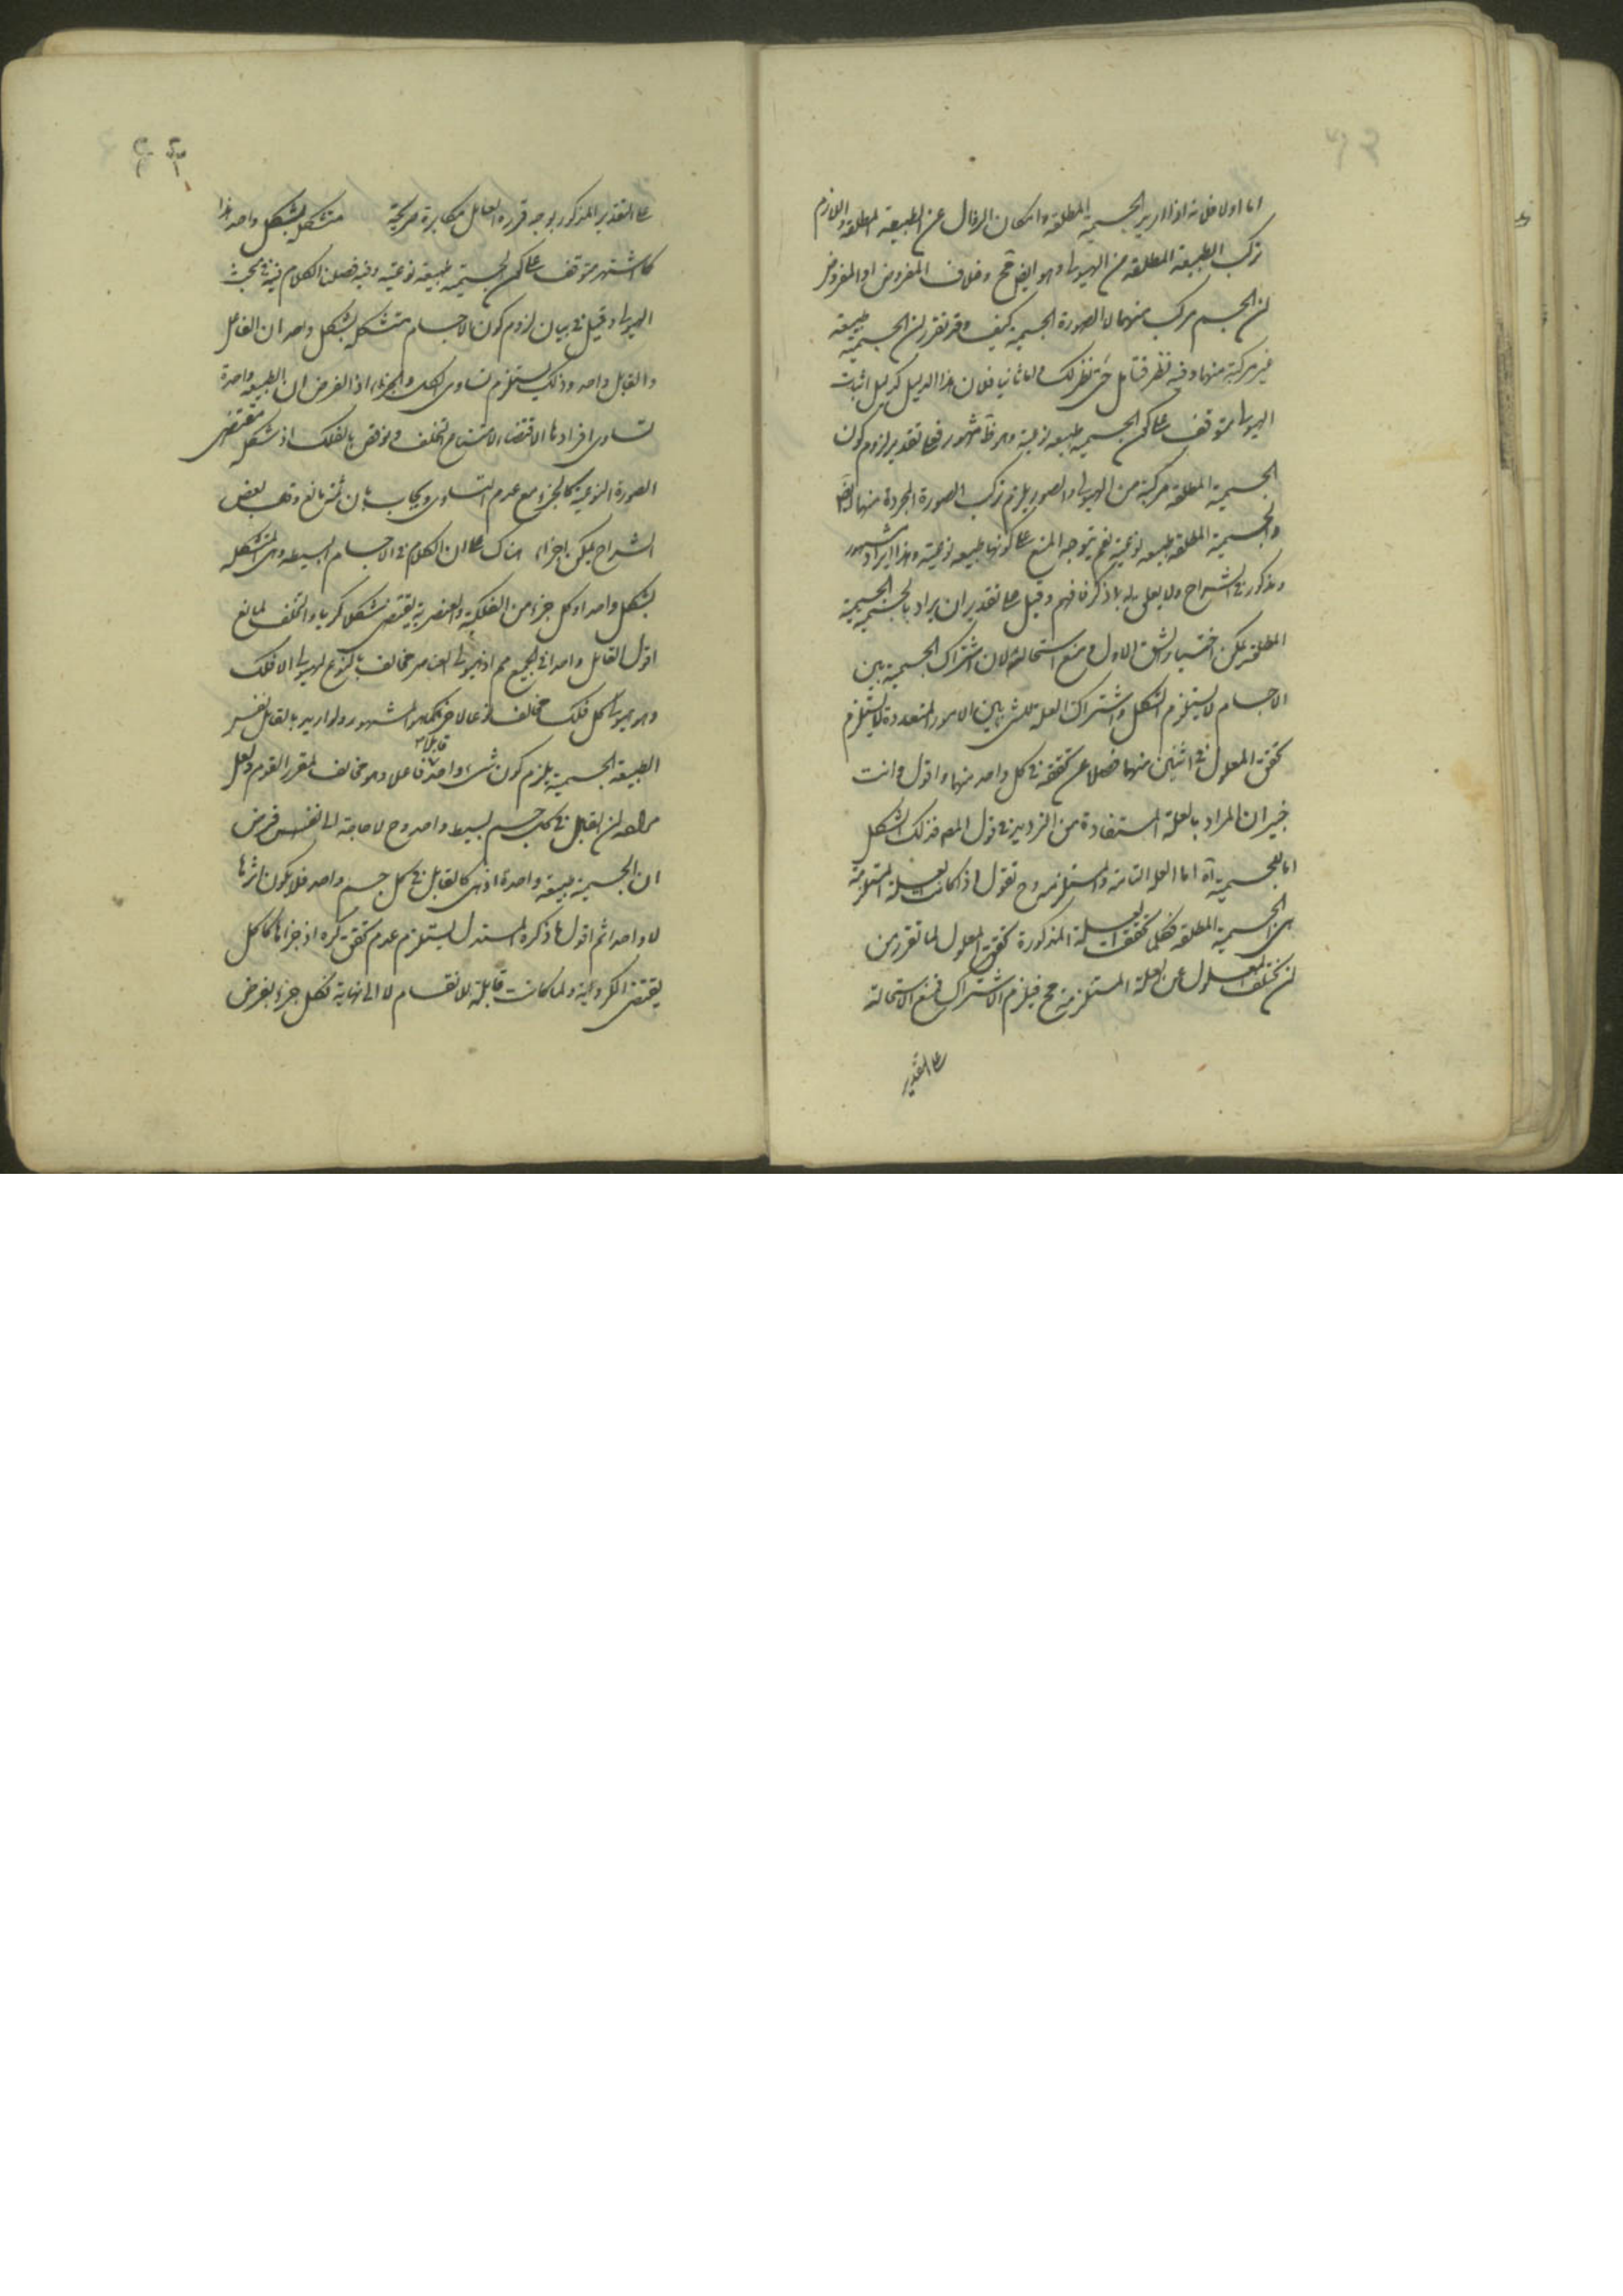 اما اولا فلانه اذا اريد الجسمية المطلقة وامكان الزوال عن الطبيعة المطلقة واللازم
تركب الطبيعة المطلقة من الهيولى وهو ايضا مح وخلاف المفروض اذ المفروض
ان الجسم مركب منهما لا الصورة الجسمية كيف وقد تقرر ان الجسمية طبيعة
غير مركبة منهما وفيه نظر فتأمل حتى يظهر لك واما ثانيا فلان هذا الدليل كدليل اثبات
الهيولى متوقف على كون الجسمية طبيعة نوعية وهو ظ مشهور فعلى تقدير لزوم كون
الجسمية المطلقة مركبة من الهيولى والصورة يلزم تركب الصورة المجردة منهما ايضا
والجسمية المطلقة طبيعة نوعية نعم يتوجه المنع على كونها طبيعة نوعية وهذا ايراد مشهور
ومذكور في الشراح ولا تعلق له بما ذكر فافهم وقيل على تقدير ان يراد بالجسمية الجسمية
المطلقة يمكن اختيار الشق الاول ومنع استحالته لان اشتراك الجسمية بين
الاجسام لا يستلزم الشكل واشتراك العلة لشئ بين الامور المتعددة لا يستلزم
تحقق المعلول في اثنين منهما فضلا عن تحققه في كل واحد منهما واقول وانت
خبير ان المراد بالعلة المستفادة من الترديد في قول المص فذلك الشكل
اما للجسمية آه اما العلة التامة والمستلزمة وح نقول اذا كانت العلة المستلزمة
هي الجسمية المطلقة فكلما تحققت العلة المذكورة تحقق المعلول لما تقرر من
ان تخلف المعلول عن العلة المستلزمة مح فيلزم الاشتراك فمنع الاستحالة
على التقدير
على التقدير المذكور بوجه قرره القائل مكابرة صريحة متشكل بشكل واحد هذا
كما اشتهر متوقف على كون الجسمية طبيعة نوعية وفيه فصلنا الكلام فيه في مبحث
الهيولى وقيل في بيان لزوم كون الاجسام متشكلة بشكل واحد ان الفاعل
والقابل واحد وذلك يستلزم تساوي الكل والجزء اذ الفرض ان الطبيعة واحدة
تساوي افرادها الاقتضاء لامتناع التخلف ونوقض بالفلك اذ شكله مقتضى
الصورة النوعية كالجزء مع عدم التساوي ويجاب بان ثمة مانع وقد بعض
الشراح يمكن اجزاء هناك على ان الكلام في الاجسام البسيطة وهي المتشكلة
بشكل واحد او كل جزء من الفلكية والعنصرية يقتضي شكلا كريا والتخلف لمانع
اقول القابل واحد في الجميع مم اذ هيولى العناصر مخالف بالنوع لهيولى الافلاك
وهو هيولى كل فلك مخالف نوعا لاخر كما هو المشهور ولو اريد بالقابل نفس
الطبيعة الجسمية يلزم كون شئ واحد قابلا وفاعلا وهو مخالف لمقرر القوم ولعل
مراده ان القابل في كل جسم بسيط واحد وح لا حاجة الى نفس فرض
ان الجسمية طبيعة واحدة اذ هي كالقابل في كل جسم واحد فلا يكون اثرها
الا واحدا ثم اقول ما ذكره المستدل يستلزم عدم تحقق كرة اذ جزئها كالكل
يقتضي الكروية ولما كانت قابلة للانقسام لا الى نهاية فكل جزء يفرض